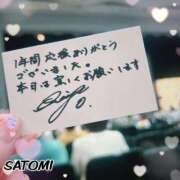 1年間応援ありがとう
ございました。
本日は宜しくお願いします
SATOMI